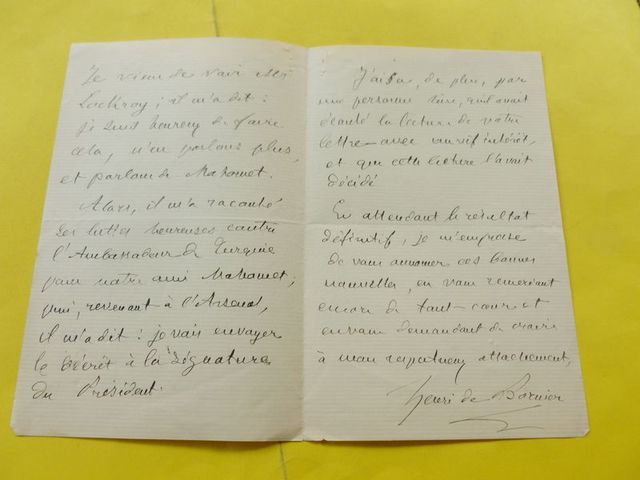 Je viens de voir Mr
Lockroy ; il m'a dit :
je suis heureux de faire
cela, n'en parlons plus,
et parlons de Mahomet.
Alors, il m'a raconté
ses luttes heureuses contre
l'Ambassadeur de Turquie
pour notre ami Mahomet ;
puis, revenant à l'Arsenal,
il m'a dit : je vais envoyer
le décret à la signature
du Président.
J'ai su, de plus, par
une personne sûre, qu'il avait
écouté la lecture de votre
lettre avec un vif intérêt,
et que cette lecture l'avait
décidé
En attendant le résultat
définitif, je m'empresse
de vous annoncer ces bonnes
nouvelles, en vous remerciant
encore de tout cœur et
en vous demandant de croire
à mon respectueux attachement,
Henri de Bornier